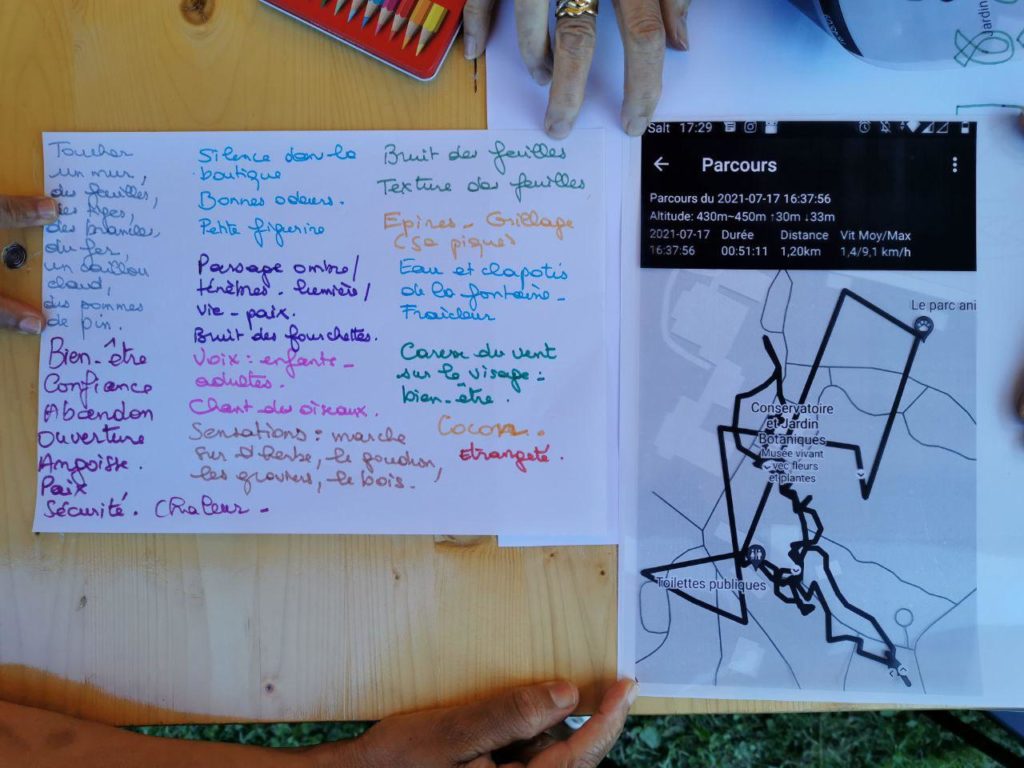 Toucher
un mur,
des feuilles,
des tiges,
des branches,
du fer,
un caillou
chaud,
des pommes
de pin.
Bien-être
Confiance
Abandon
Ouverture
Angoisse.
Paix
Sécurité. Chaleur -
Silence dans la
boutique
Bonnes odeurs.
Petite figurine
Passage ombre/
ténèbres - lumière/
vie - paix.
Bruit des fourchettes.
Voix : enfants -
adultes.
Chant des oiseaux.
Sensations : marche
sur l'herbe, le goudron,
les graviers, le bois.
Bruit des feuilles
Texture des feuilles
Epines - Grillage
(ça pique)
Eau et clapotis
de la fontaine -
Fraîcheur
Caresse du vent
sur le visage :
bien-être.
Cocon.
Etrangeté.
Jardin
Salt 17:29
Parcours
Parcours du 2021-07-17 16:37:56
Altitude: 430m~450m ↑30m ↓33m
2021-07-17 Durée Distance Vit Moy/Max
16:37:56 00:51:11 1,20km 1,4/9,1 km/h
Le parc ani
Conservatoire
et Jardin
Botaniques
Musée vivant
vec fleurs
et plantes
Toilettes publiques